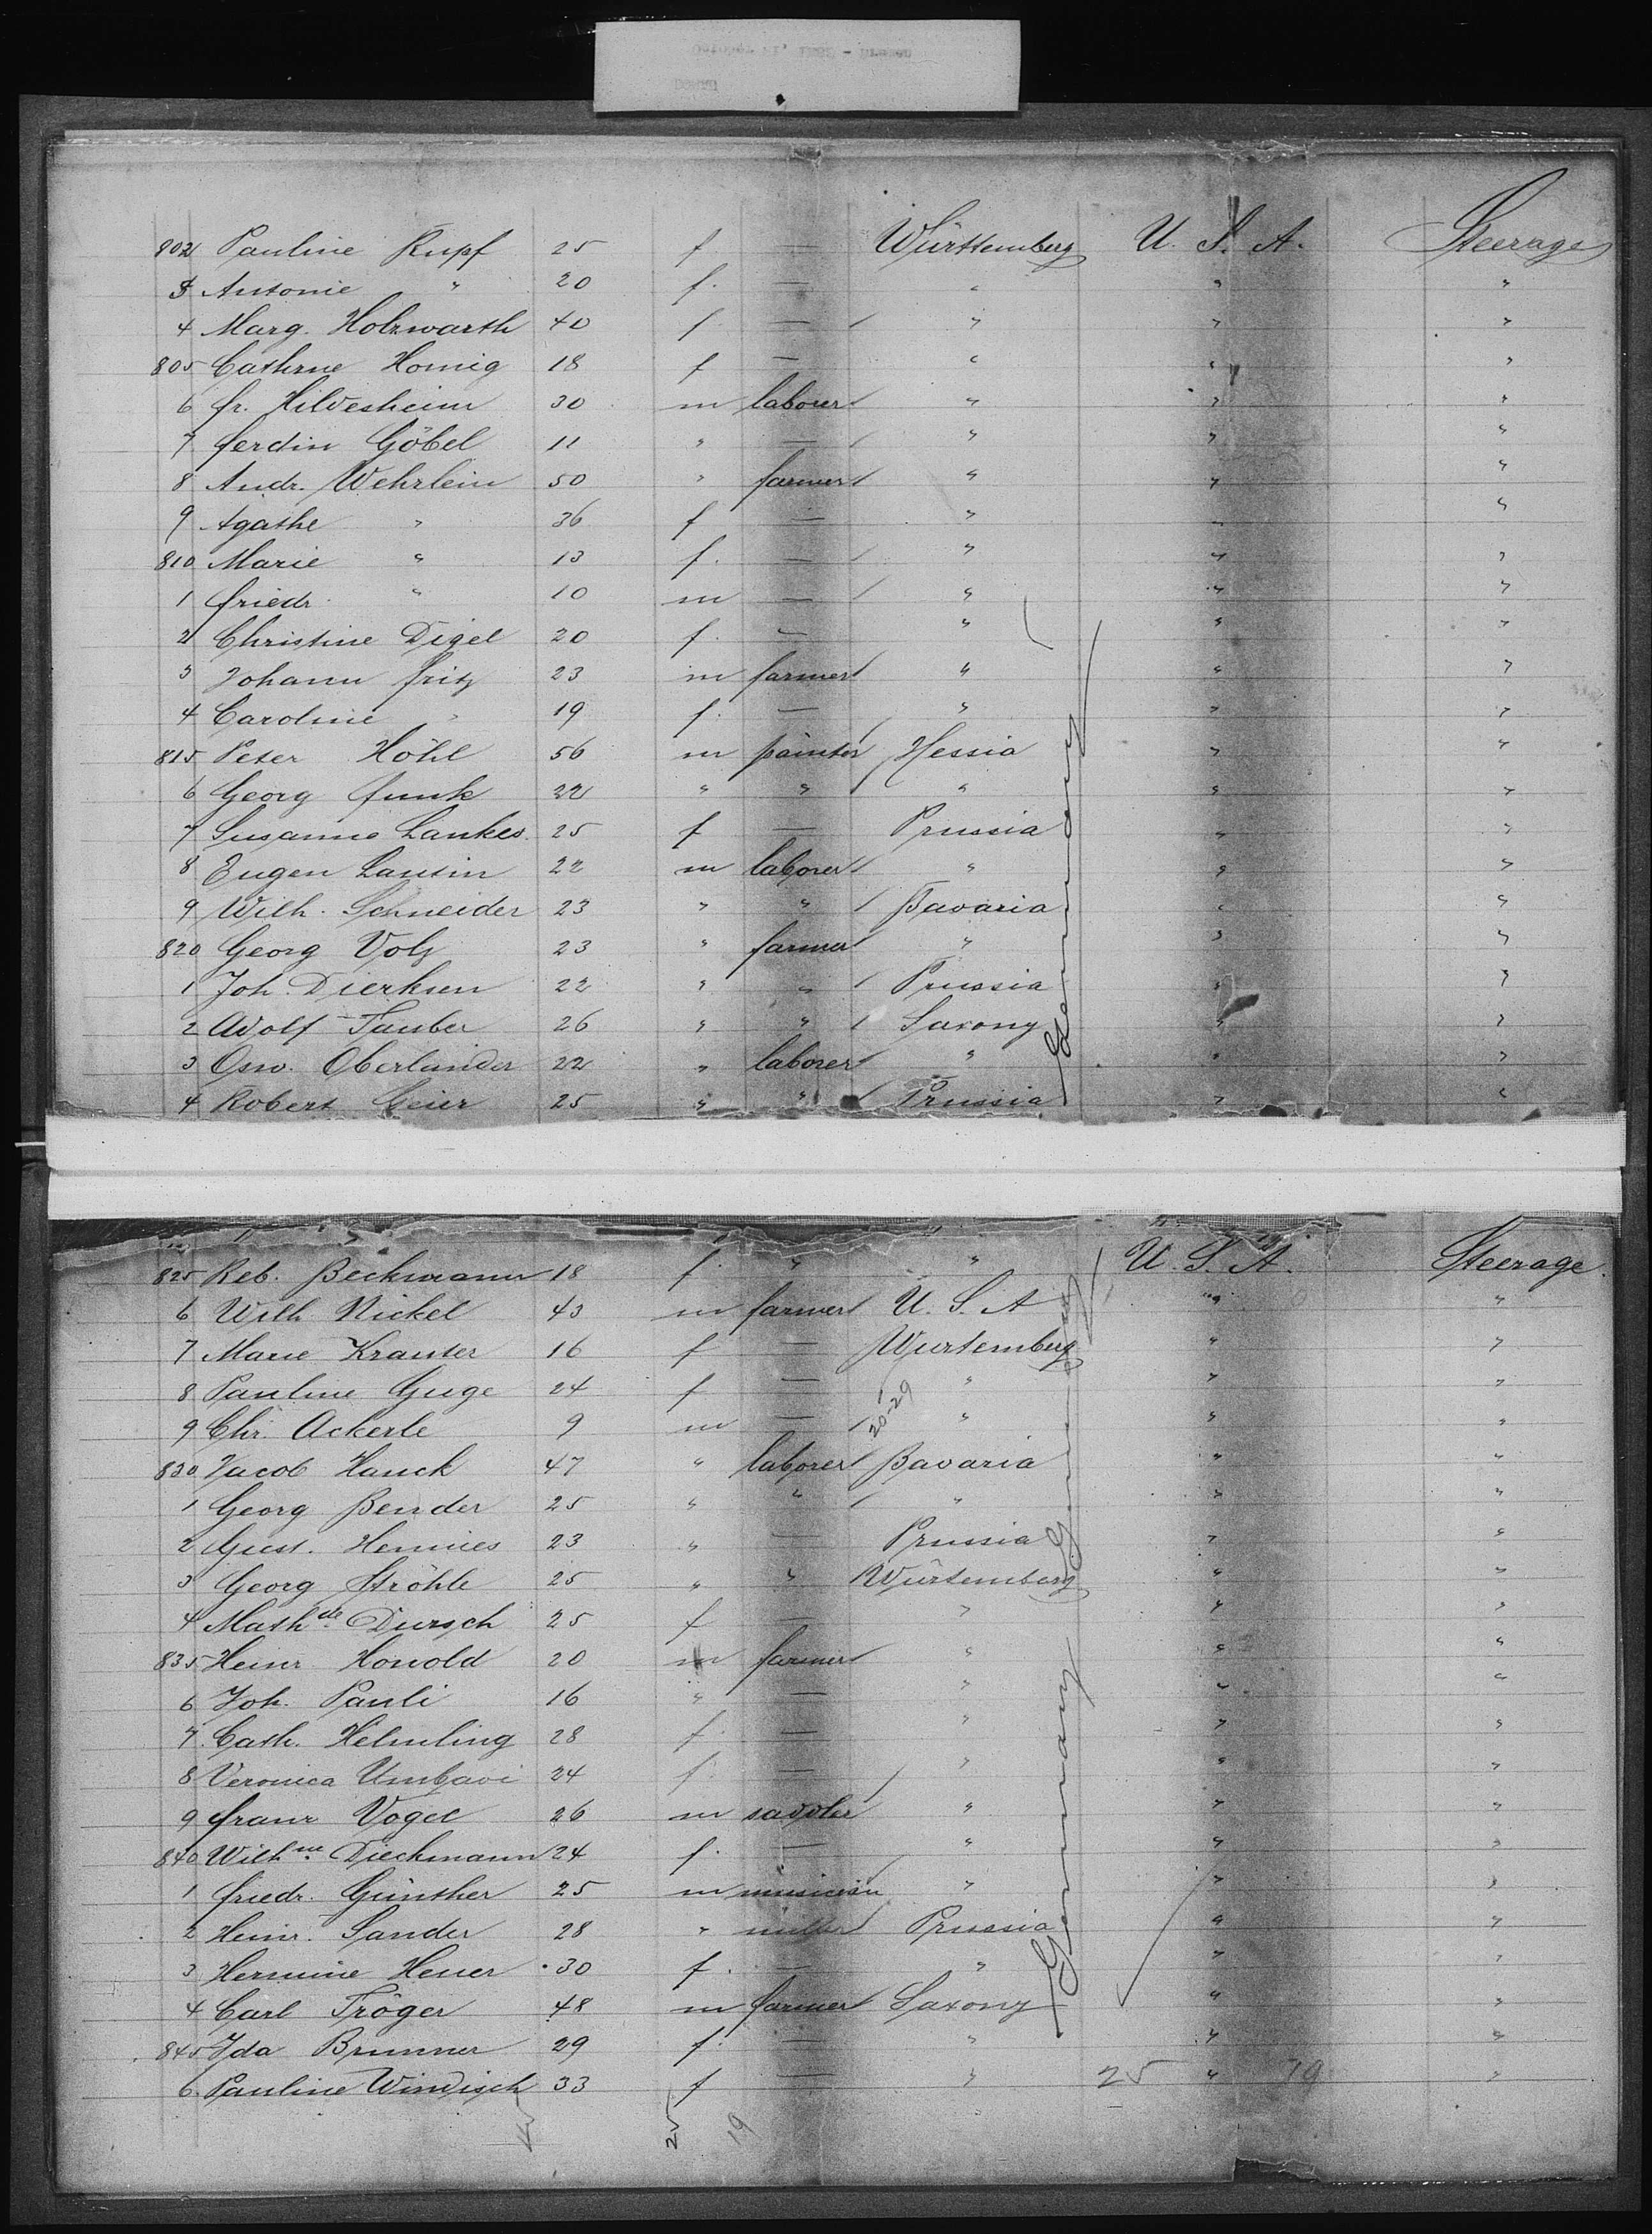 802 Pauline Rupf 25 f — Württemberg U. S. A. Steerage
3 Antonie " 20 f. — " " "
4 Marg. Holzwarth 40 f — " " "
805 Cathrne Homig 18 f — " " "
6 fr. Hildesheim 30 m laborer " " "
7 ferdin Göbel 11 " — " " "
8 Andr. Wehrlein 50 " farmer " " "
9 Agathe " 36 f — " " "
810 Marie " 13 f. — " " "
1 friedr. " 10 m — " " "
2 Christine Digel 20 f. — " " "
3 Johann fritz 23 m farmer " " "
4 Caroline " 19 f. — " " "
815 Peter Höhl 56 m painter Hessia " "
6 Georg funk 22 " " " " "
7 Susanne Lankes 25 f — Prussia " "
8 Eugen Lansin 22 m laborer " " "
9 Wilh. Schneider 23 " " Bavaria " "
820 Georg Volz 23 " farmer " " "
1 Joh. Dierksen 22 " " Prussia " "
2 Adolf Tauber 26 " " Saxony " "
3 Osw. Oberlander 22 " laborer " " "
4 Robert Geier 25 " " Prussia " "
Germany
825 Reb. Beckmann 18 f. " " U. S. A. Steerage
6 Wilh. Nickel 43 m farmer U. S. A " "
7 Marie Krauter 16 f — Wurtemberg " "
8 Pauline Guge 24 f — " " "
9 Chr. Ackerle 9 m — 20-29 " " "
830 Jacob Hauck 47 " laborer Bavaria " "
1 Georg Bender 25 " " " " "
2 Gust. Hennies 23 " — Prussia " "
3 Georg Ströhle 25 " " Würtemberg " "
4 Mathde Dursch 25 f — " " "
835 Heinr Honold 20 m farmer " " "
6 Joh. Pauli 16 " — " " "
7 Cath. Helmling 28 f. — " " "
8 Veronica 24 f. — " " "
9 franz Vogel 26 m saddler " " "
840 Wilhne Dieckmann 24 f. — " " "
1 friedr. Günther 25 m musician " " "
2 Heinr. Sander 28 " miller Prussia " "
3 Hermine Heuer 30 f. — " " "
4 Carl Tröger 48 m farmer Saxony " "
845 Ida Brunner 29 f. — " " "
6 Pauline Windisch 33 f — " 25 " 19 "
Germany
25 19